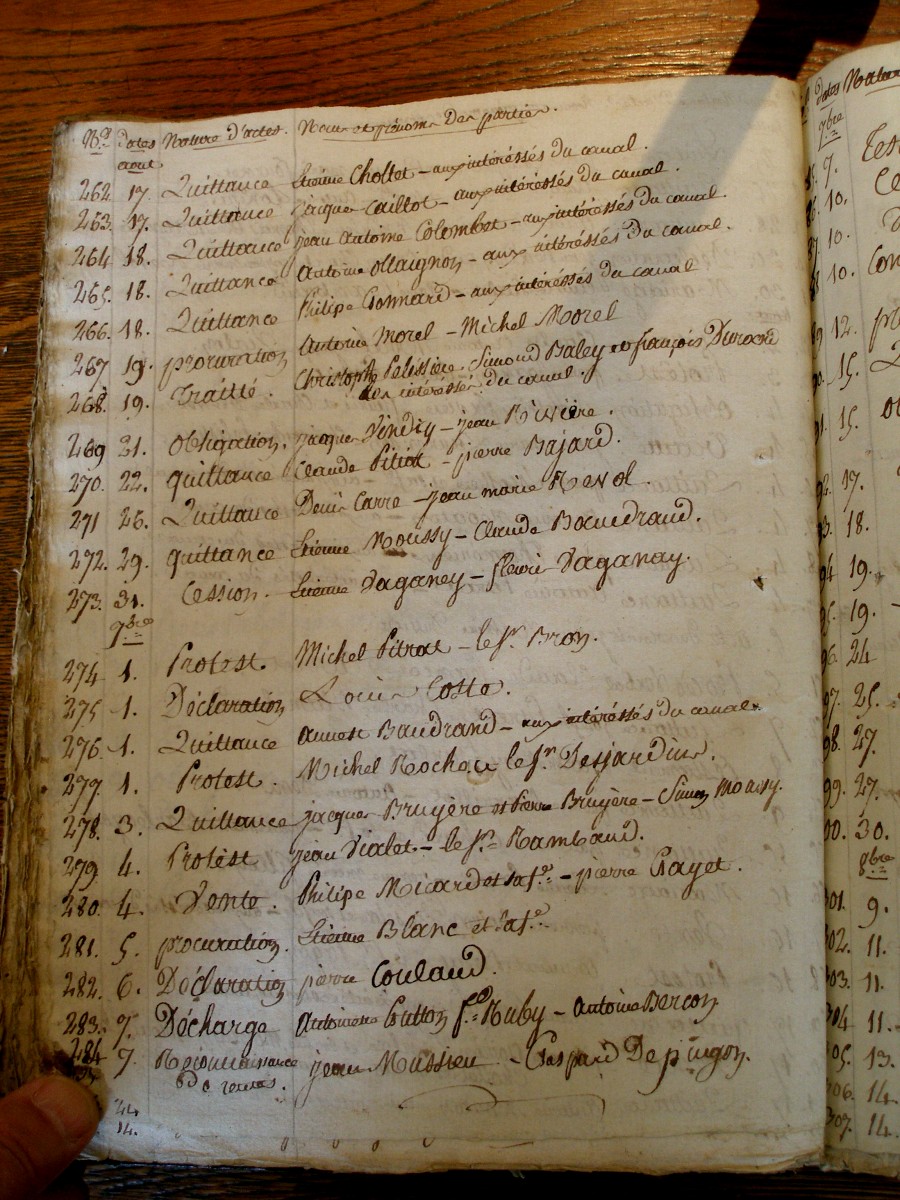 Nos dates Nature d'actes. Noms et prénoms Des parties.
aout
262. 17. Quittance Etienne Chollet - aux intéréssés du canal.
263. 17. Quittance jacques Caillot - aux intéréssés du canal.
264 18. Quittance jean Antoine Colombet - aux intéréssés du canal.
265. 18. Quittance Antoine - aux intéréssés du canal.
266. 18. Quittance Philipe Gonnard - aux intéréssés du canal
267 19. procuration Antoine Morel - Michel Morel
268. 19. Traitté. Christophe Pelissier, Simond Baley et françois Durozé
les intéréssés du canal.
269 21. Obligation. jacques Vindry - jean Rivière.
270. 22. quittance Claude Pitiot - pierre Bajard.
271 26. Quittance Denis Carre - jean marie Revol.
272. 29. quittance Etienne Moussy - Claude Baudrand.
273. 31. Cession. Etienne Vaganey - fleuri Vaganay.
7bre
274 1. Protest. Michel Pitrat - le Sr. Bron.
275 1. Déclaration Louis Coste.
276. 1. Quittance Annest Baudrand - aux intéréssés du canal.
277. 1. Protest. Michel Rochat le Sr. Desjardins.
278. 3. Quittance jacques Bruyère et Pierre Bruyère - Simon Moussy.
279 4. Protést jean Vialet - le Sr. Rambaud.
280. 4. Vente. Philipe Micard et sa fe. - pierre Payet.
281. 5. procuration. Etienne Blanc et sa fe.
282. 6. Déclaration pierre Coulaud.
283. 7. Décharge Antoinette Coutton fe. Ruby - Antoine Bercon
284 7. Reconnaissance jean Mussieu - Gaspard De pingon.
24
14.
dates Natur
7bre
7.
10.
10.
10.
12.
15.
15.
17.
18.
19.
19.
24
25.
27.
99. 27.
00. 30.
8bre
301. 9.
302. 11.
303. 11.
304 11.
305. 13.
306. 14.
307. 14.